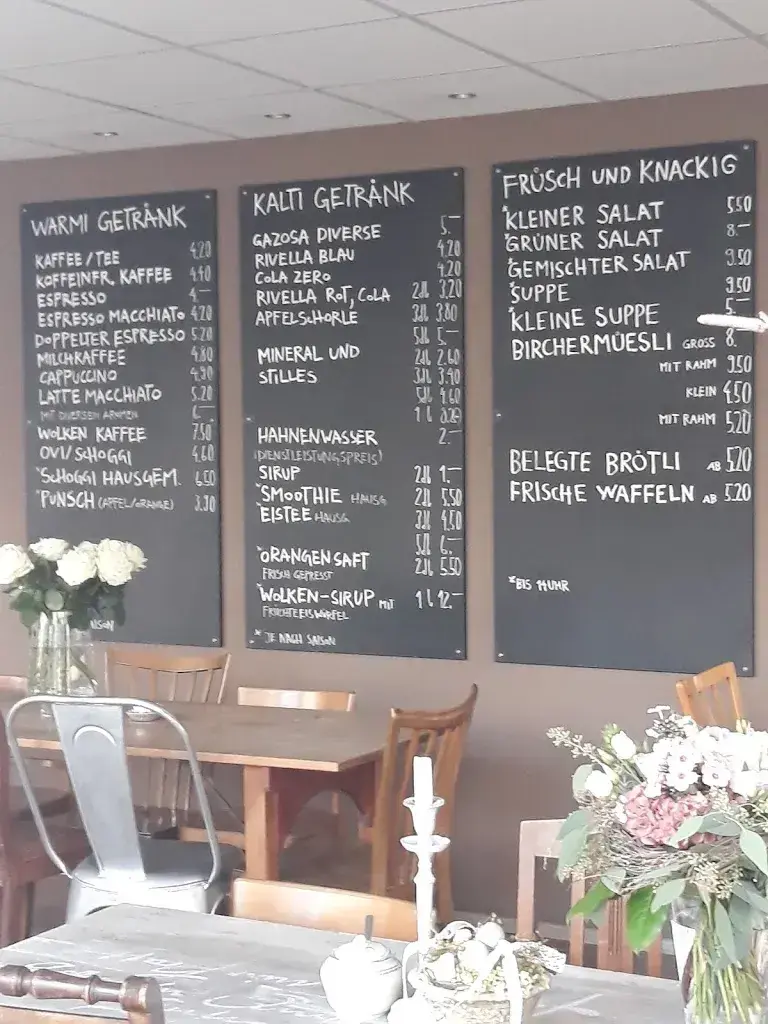 WARMI GETRÄNK
KAFFEE/TEE 4.20
KOFFEINFR. KAFFEE 4.40
ESPRESSO 4.—
ESPRESSO MACCHIATO 4.20
DOPPELTER ESPRESSO 5.20
MILCHKAFFEE 4.80
CAPPUCCINO 4.90
LATTE MACCHIATO 5.20
MIT DIVERSEN AROMEN 6.—
WOLKEN KAFFEE 7.50
OVI/SCHOGGI 4.60
*SCHOGGI HAUSGEM. 6.50
*PUNSCH (APFEL/ORANGE)
KALTI GETRÄNK
GAZOSA DIVERSE 5.—
RIVELLA BLAU 4.20
COLA ZERO 4.20
RIVELLA ROT, COLA 2dL 3.20
APFELSCHORLE 3dL 3.80
5dL 5.—
MINERAL UND 2dL 2.60
STILLES 3dL 3.40
5dL 4.60
1L
HAHNENWASSER 2.—
(DIENSTLEISTUNGSPREIS)
SIRUP 2dL 1.—
*SMOOTHIE HAUSG. 2dL 5.50
*EISTEE HAUSG. 3dL 4.50
5dL 6.—
*ORANGENSAFT 2dL 5.50
FRISCH GEPRESST
*WOLKEN-SIRUP MIT 1L 12.—
FRÜCHTEEISWÜRFEL
* JE NACH SAISON
FRÜSCH UND KNACKIG
*KLEINER SALAT 5.50
*GRÜNER SALAT 8.—
*GEMISCHTER SALAT 9.50
*SUPPE 9.50
*KLEINE SUPPE 5.—
BIRCHERMÜESLI GROSS 8.
MIT RAHM 9.50
KLEIN 4.50
MIT RAHM 5.20
BELEGTE BRÖTLI AB 5.20
FRISCHE WAFFELN AB 5.20
*BIS 14 UHR